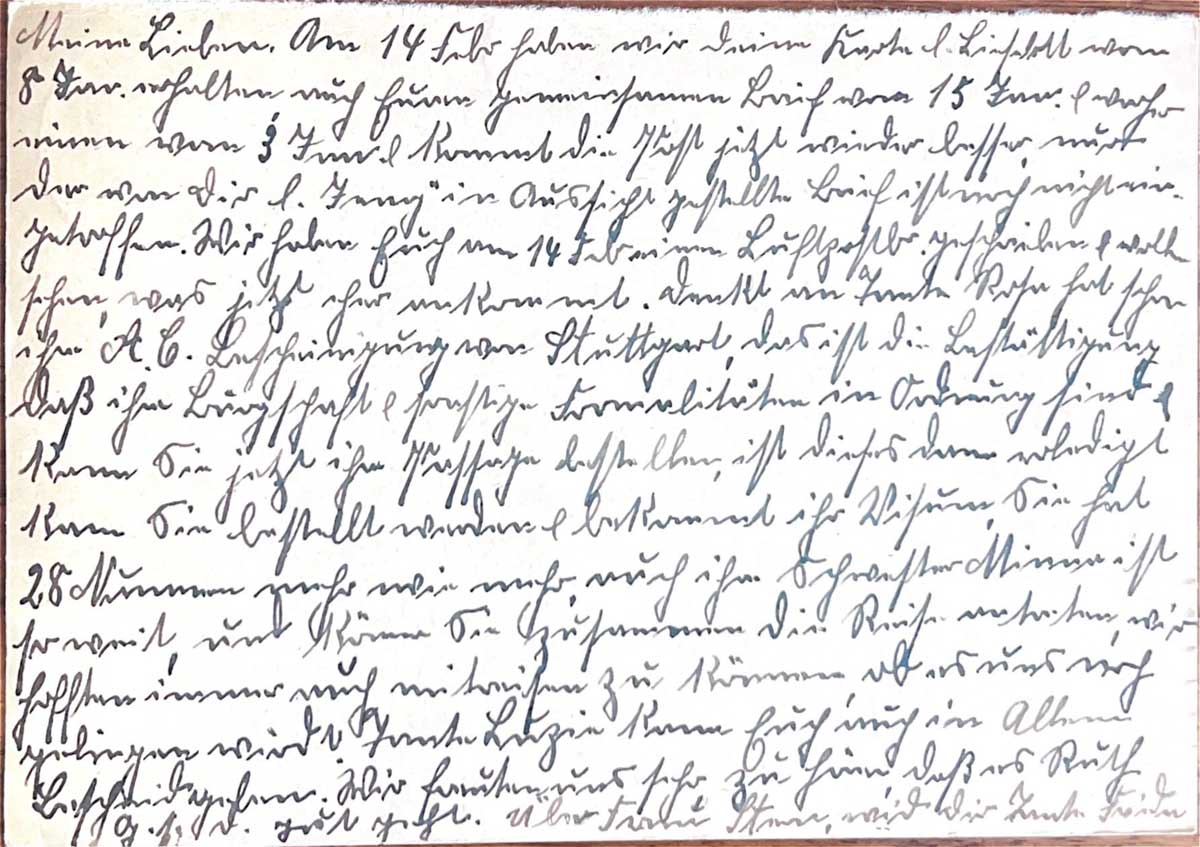 Meine Lieben. Am 14 Febr haben wir deine Karte l. Lieselott vom
8 Jan. erhalten auch Euren gemeinsamen Brief vom 15 Jan. & vorher
einen vom 3 Jan & kommt die Post jetzt wieder besser, nur
der von Dir l. in Aussicht gestellte Brief ist noch nicht ein-
getroffen. Wir haben Euch am 14 Feb einen Luftpostbr. geschrieben & wollen
sehen, was jetzt eher ankommt. Denkt an Tante Rosa hat schon
ihre Bescheinigung von Stuttgart, das ist die Bestättigung
daß ihre Bürgschaft & sonstige Formalitäten in Ordnung sind &
kann Sie jetzt ihre Passage bestellen, ist dieses dann erledigt
kann Sie bestellt werden & bekommt ihr Visum, Sie hat
28 Nummern mehr wie wir, auch ihre Schwester Minna ist
so weit, und können Sie zusammen die Reise antreten, wir
hofften immer auch mitreisen zu können, ob es uns noch
gelingen wird? Tante Luzie kann Euch auch in Allem
Bescheid geben. Wir freuten uns sehr zu hören, daß es Ruth
g. s. d. gut geht. Über Frau Stern, wird dir Tante Frieda